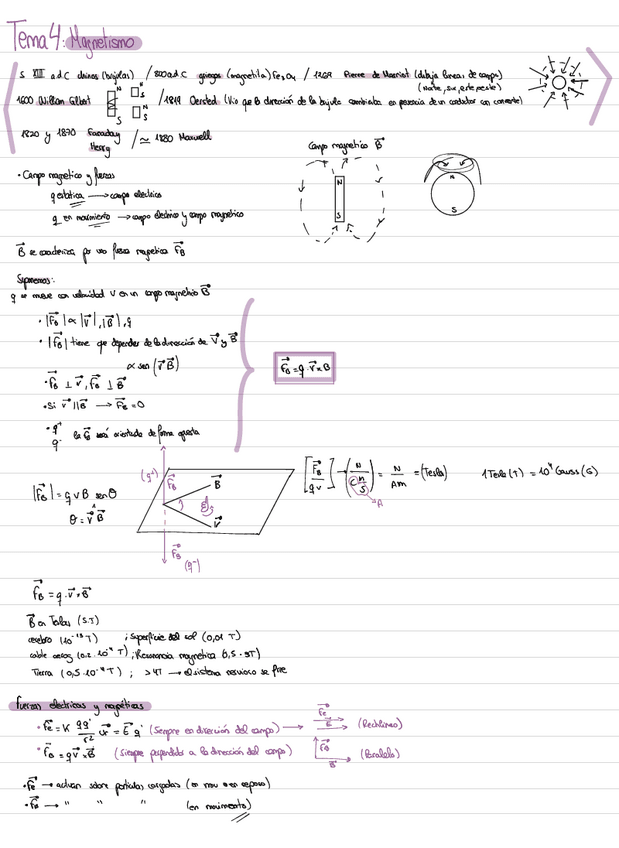 Tema 4: Magnetismo
S XIII a.d.C chinos (brújulas) / 800 a.d.C griegos (magnetita) Fe₃O₄ / 1269 Pierre de Maricourt (dibuja líneas de campo)
(Norte, sur, este, oeste)
1600 William Gilbert N S N S N S / 1819 Oersted (Vio que B dirección de la brújula cambiaba en presencia de un conductor con corriente)
1820 y 1870 Faraday Henry / ≃ 1880 Maxwell
Campo magnético B⃗
N
S
N
S
· Campo magnético y fuerzas
q estática → campo eléctrico
q en movimiento → campo eléctrico y campo magnético
B⃗ se caracteriza por una fuerza magnética F⃗B
Suponemos:
q se mueve con velocidad v en un campo magnético B⃗
· |F⃗B| ∝ |v⃗|, |B⃗|, q
· |F⃗B| tiene que depender de la dirección de v⃗ y B⃗
∝ sen (v⃗ B⃗)
· F⃗B ⊥ v⃗, F⃗B ⊥ B⃗
· Si v⃗ || B⃗ → F⃗B = 0
· q⁺ q⁻ la F⃗B será orientada de forma opuesta
F⃗B = q · v⃗ × B
|F⃗B| = q v B senθ
θ = v⃗ B⃗
(q⁺) F⃗B
B⃗
v⃗
F⃗B
(q⁻)
[F⃗B / qv] → (N / C m/s) = N / Am = (Tesla)
A
1 Tesla (T) = 10⁴ Gauss (G)
F⃗B = q · v⃗ × B⃗
B⃗ en Teslas (S.I)
cerebro (10⁻¹³ T) ; Superficie del sol (0,01 T)
cable (0.2 · 10⁻⁴ T) ; Resonancia magnética (0,5 - 3T)
Tierra (0,5 · 10⁻⁴ T) ; > 4T → el sistema nervioso se fríe
fuerzas eléctricas y magnéticas
· F⃗e = K qq' / r² u⃗r = E⃗ q' (Siempre en dirección del campo) → F⃗e E⃗ (Rectilíneo)
· F⃗B = q v⃗ × B⃗ (siempre perpendicular a la dirección del campo) F⃗B B⃗ (Paralelo)
· F⃗e → actúan sobre partículas cargadas (en mov o en reposo)
· F⃗B → " " " (en movimiento)